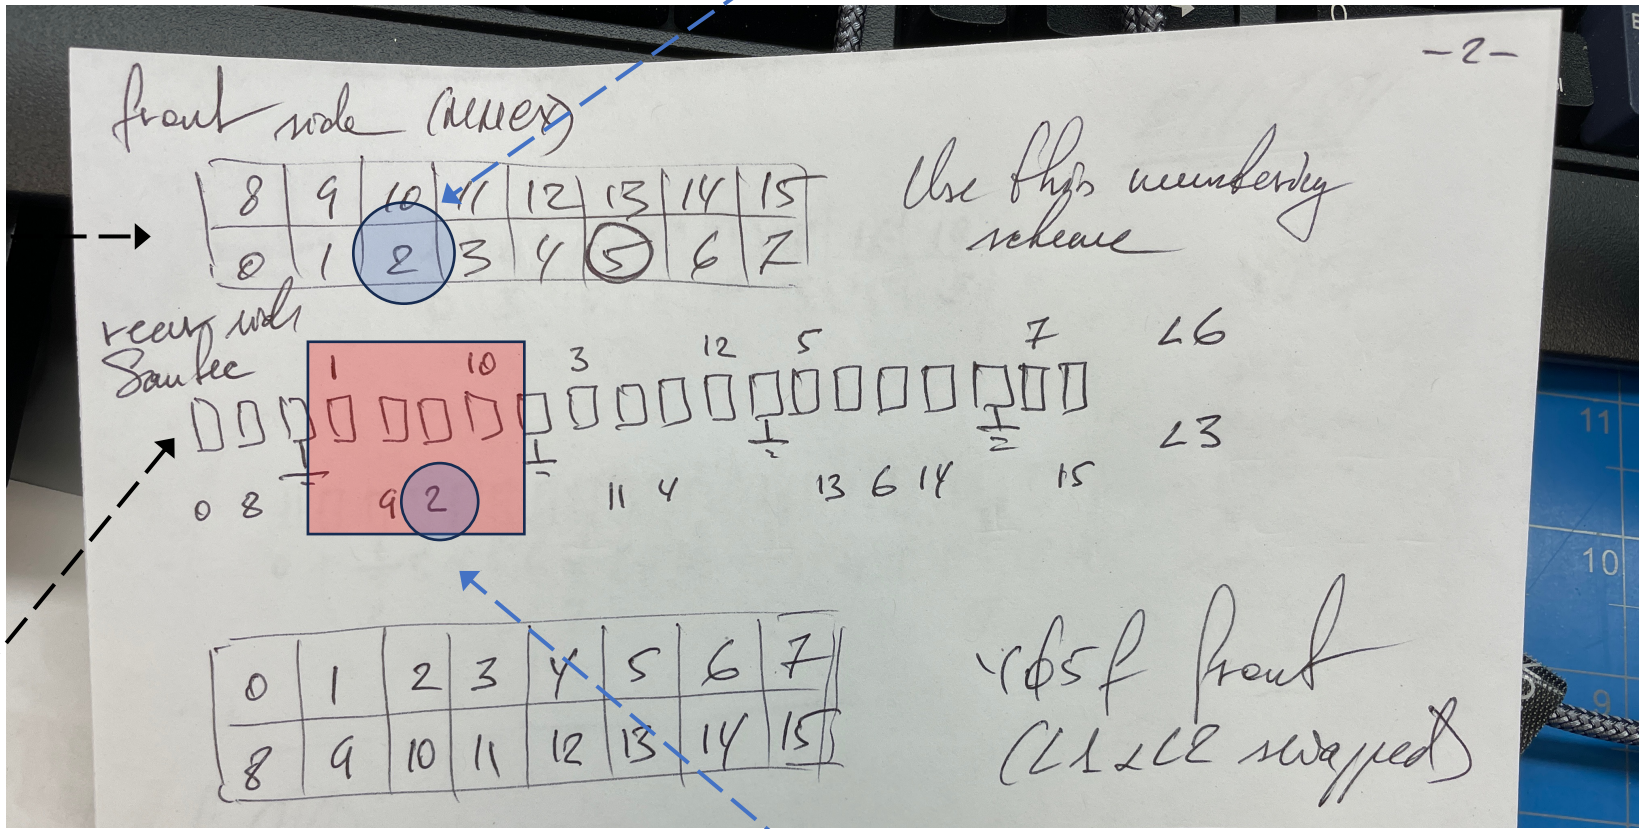 -2-
front side
8 9 10 11 12 13 14 15
0 1 2 3 4 5 6 7
Use this numbering
scheme
rear side
1 10 3 12 5 7 L6
L3
0 8 9 2 11 4 13 6 14 15
0 1 2 3 4 5 6 7
8 9 10 11 12 13 14 15
front
(L1 & L2 swapped)
11
10
9